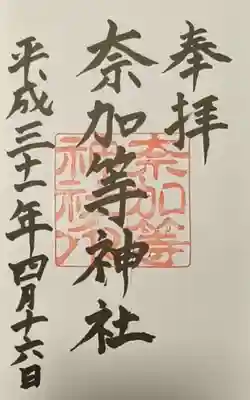 奉拝
奈加等神社
平成三十一年四月十六日
奈加等
神社印